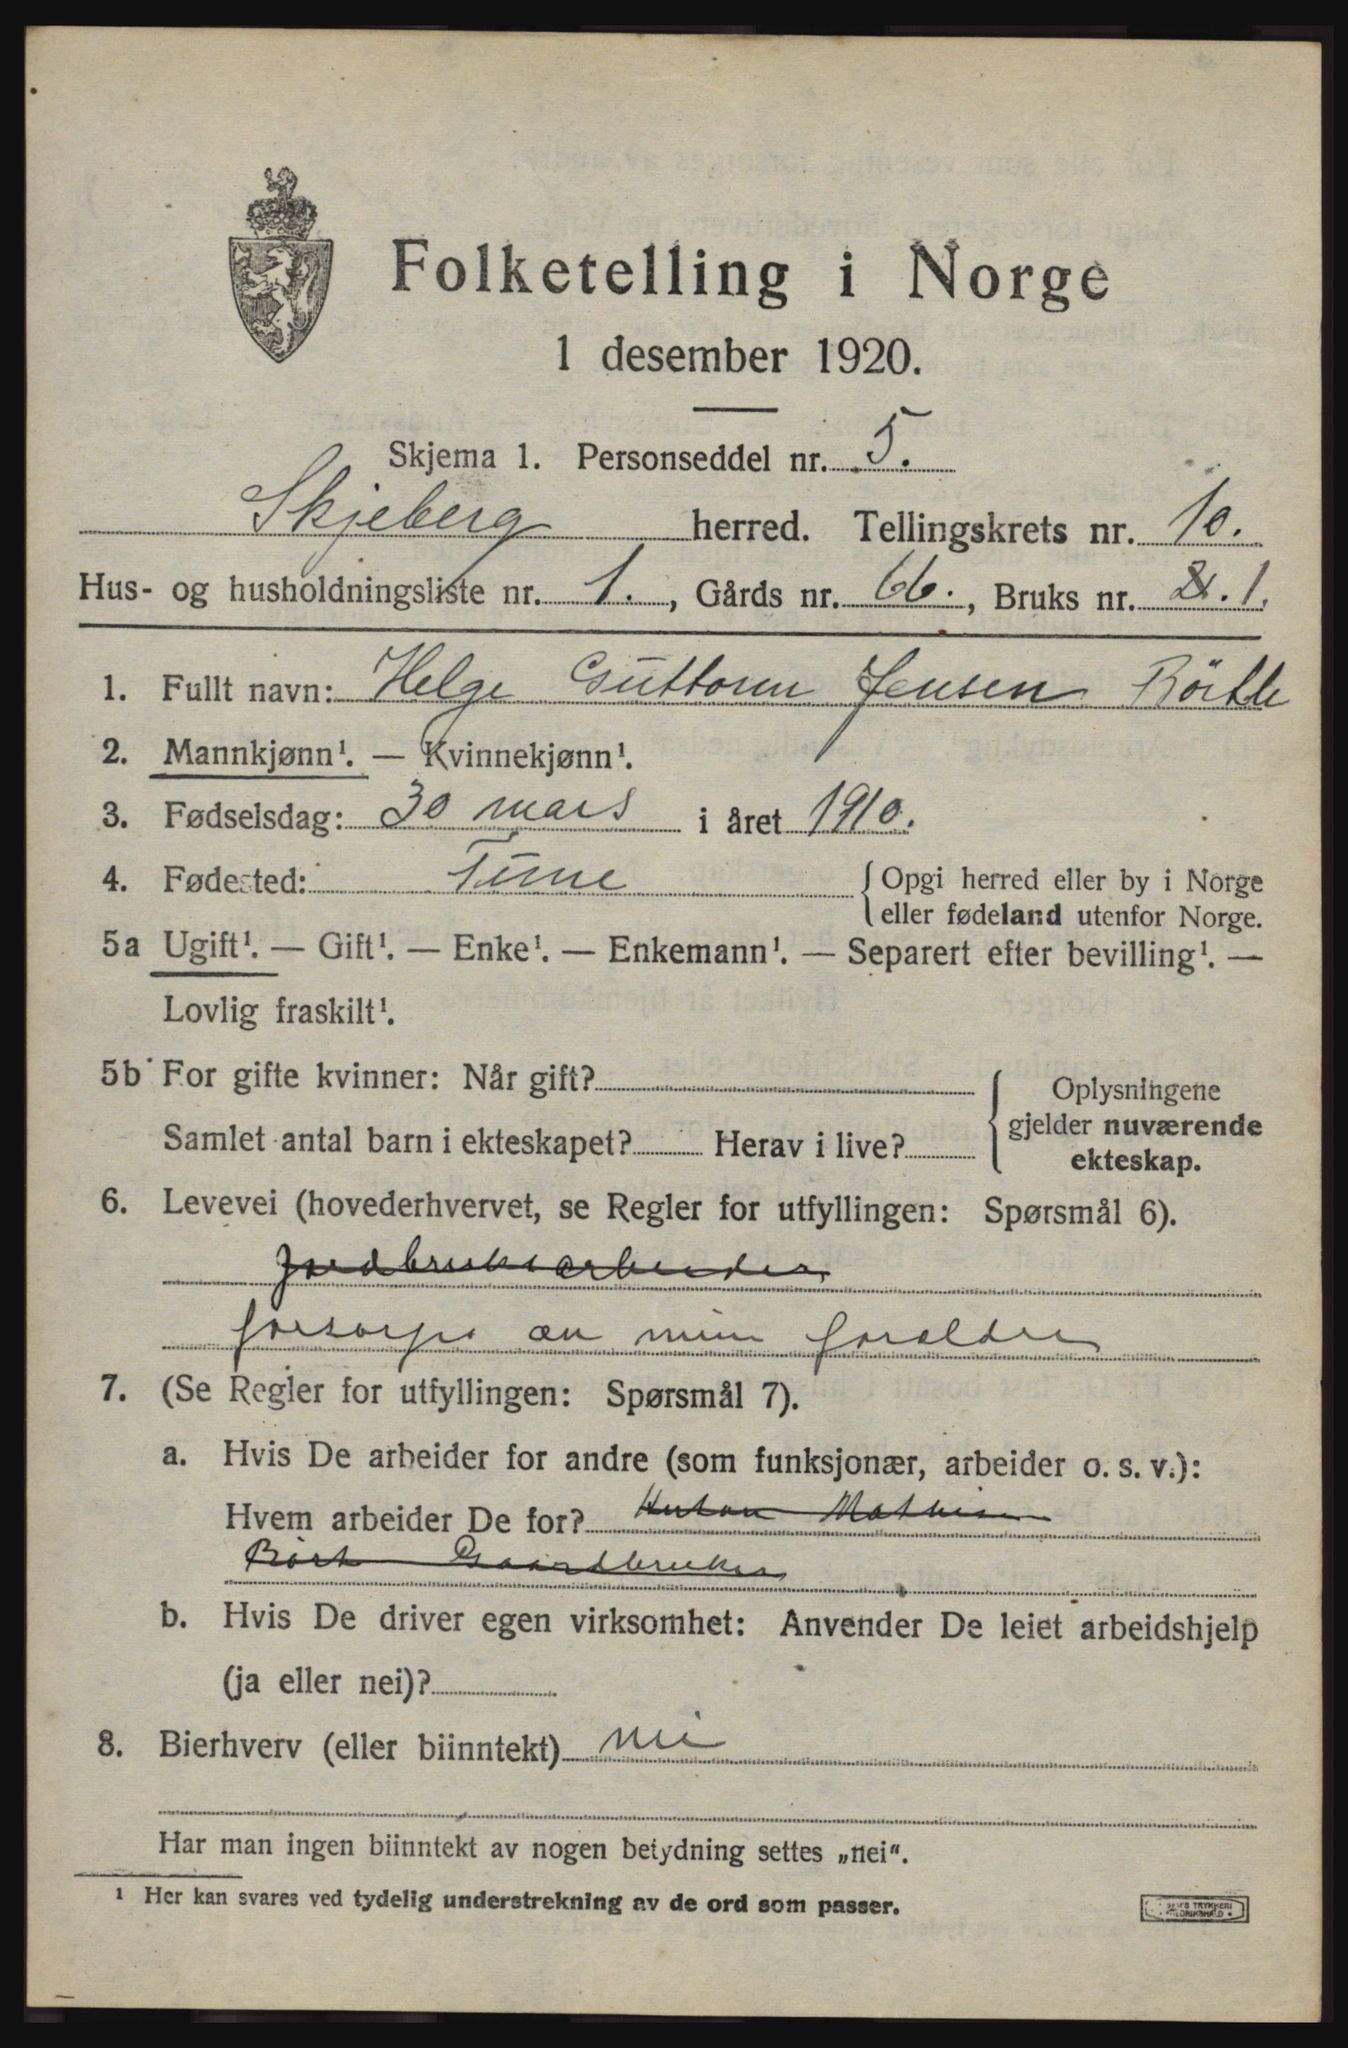 Folketelling i Norge
1 desember 1920.
Skjema 1. Personseddel nr. 5.
Skjeberg herred. Tellingskrets nr. 10.
Hus- og husholdningsliste nr. 1., Gårds nr. 66., Bruks nr. 1.
1. Fullt navn: Helge Guttorm Jensen
2. Mannkjønn¹. — Kvinnekjønn¹.
3. Fødselsdag: 30 mars i året 1910.
4. Fødested: Tune
Opgi herred eller by i Norge
eller fødeland utenfor Norge.
5a Ugift¹. — Gift¹. — Enke¹. — Enkemann¹. — Separert efter bevilling¹. —
Lovlig fraskilt¹.
5b For gifte kvinner: Når gift?
Samlet antal barn i ekteskapet? Herav i live?
Oplysningene
gjelder nuværende
ekteskap.
6. Levevei (hovederhvervet, se Regler for utfyllingen: Spørsmål 6).
Jordbruksarbeider
forsørges av mine foreldre
7. (Se Regler for utfyllingen: Spørsmål 7).
a. Hvis De arbeider for andre (som funksjonær, arbeider o. s. v.):
Hvem arbeider De for? Anton Mathisen
Gaardbruker
b. Hvis De driver egen virksomhet: Anvender De leiet arbeidshjelp
(ja eller nei)?
8. Bierhverv (eller biinntekt) nei
Har man ingen biinntekt av nogen betydning settes „nei".
¹ Her kan svares ved tydelig understrekning av de ord som passer.